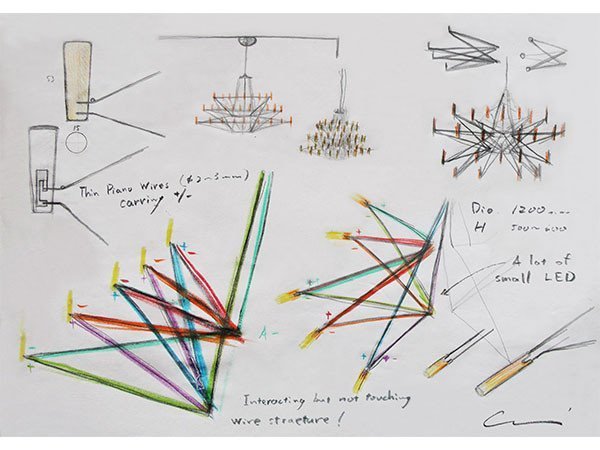 53
15
Thin Piano Wires (ϕ2~3mm)
carring +/-
Dio. 1200mm
H 500~600
A lot of
small LED
A -
Interacting but not touching
wire structure!